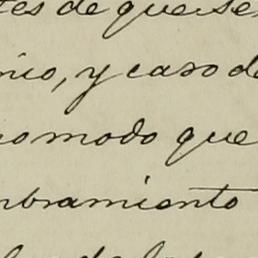 tes de que se
nio, y caso de
no modo que
mbramiento